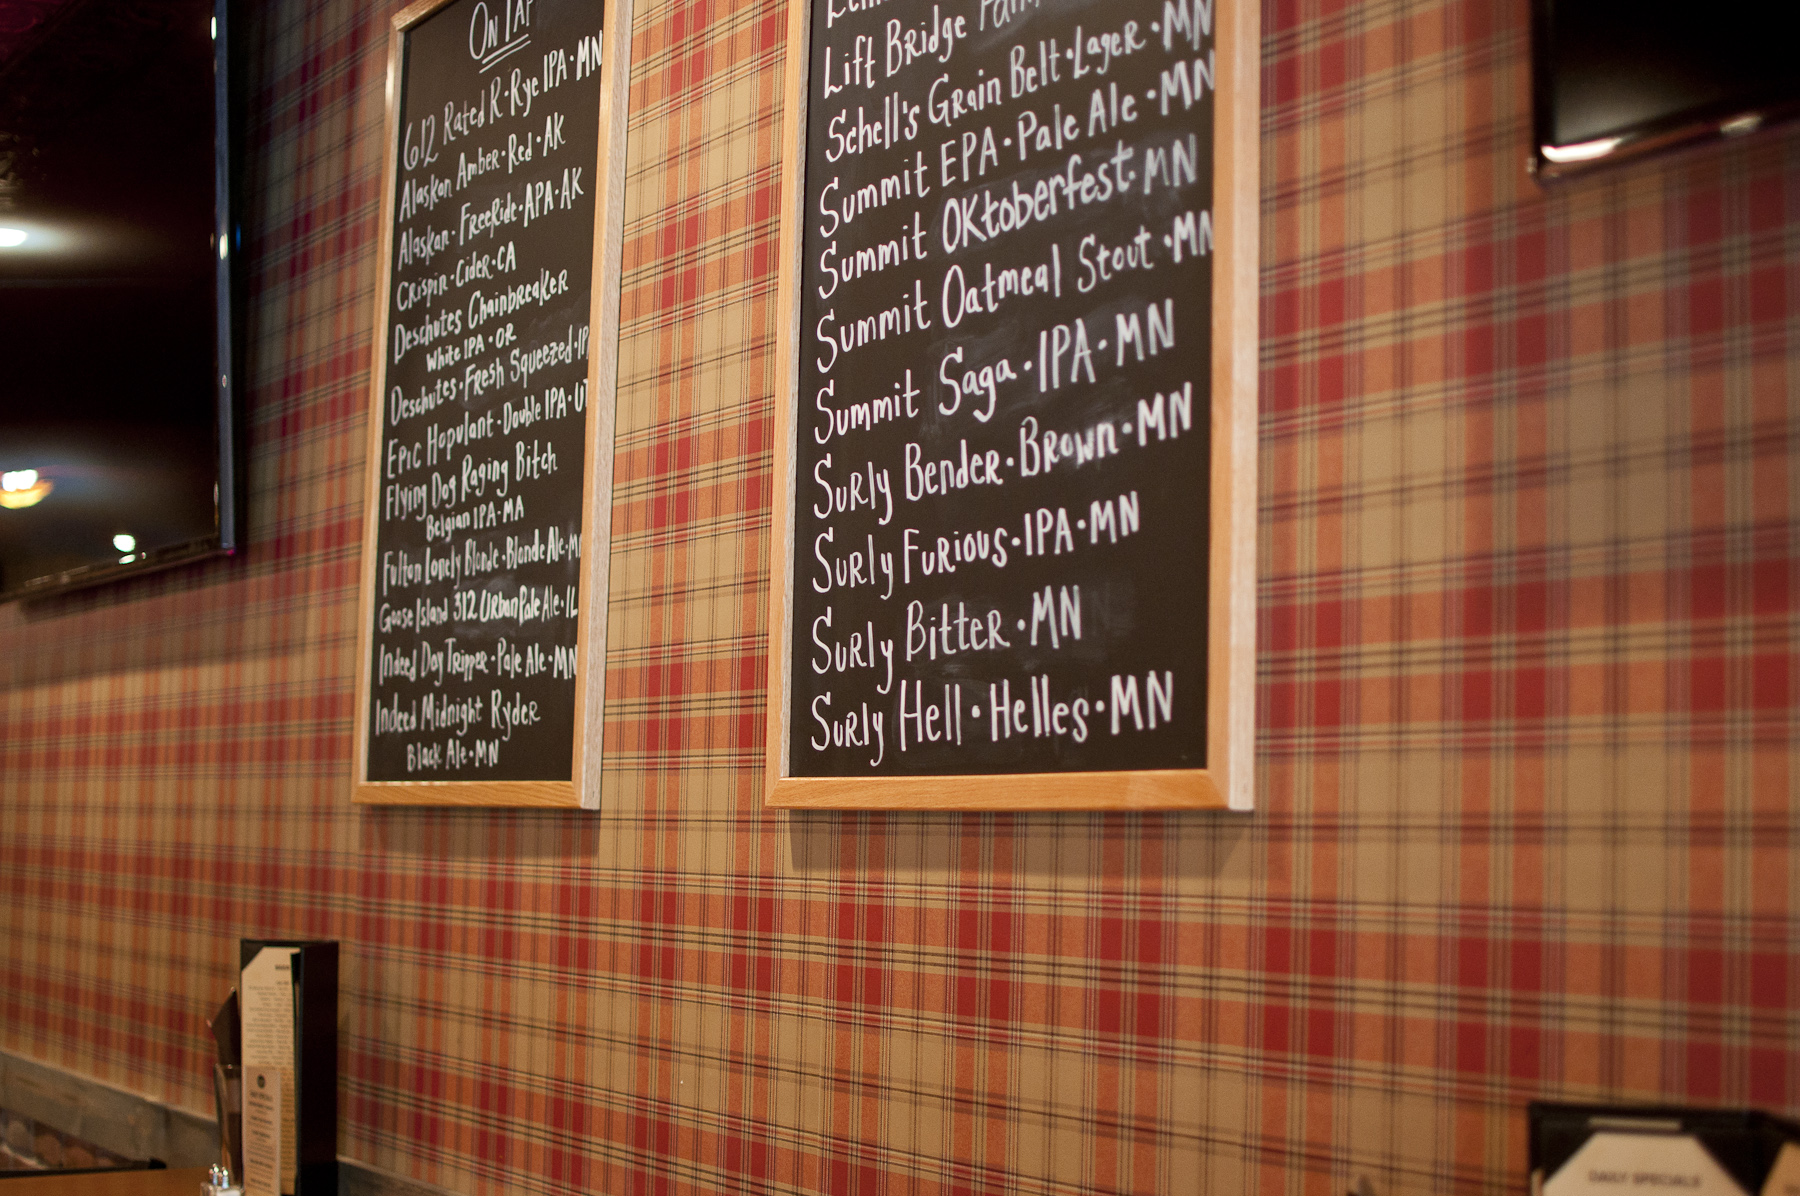 On Tap
612 Rated R·Rye IPA·MN
Alaskan Amber·Red·AK
Alaskan·FreeRide·APA·AK
Crispin·Cider·CA
Deschutes Chainbreaker
White IPA·OR
Deschutes·Fresh Squeezed·IP
Epic Hopulant·Double IPA·UT
Flying Dog Raging Bitch
Belgian IPA·MA
Fulton Lonely Blonde·Blonde Ale·M
Goose Island 312 Urban Pale Ale·IL
Indeed Day Tripper·Pale Ale·MN
Indeed Midnight Ryder
Black Ale·MN
Lift Bridge
Schell's Grain Belt·Lager·MN
Summit EPA·Pale Ale·MN
Summit Oktoberfest·MN
Summit Oatmeal Stout·MN
Summit Saga·IPA·MN
Surly Bender·Brown·MN
Surly Furious·IPA·MN
Surly Bitter·MN
Surly Hell·Helles·MN
DAILY SPECIALS